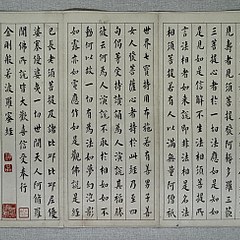 見壽者見須菩提發阿耨多羅三藐
三菩提心者於一切法應如是知如
是見如是信解不生法相須菩提所
言法相者如來說即非法相是名法
相須菩提若有人以滿無量阿僧祇
世界七寶持用布施若有善男子善
女人發菩薩心者持於此經乃至四
句偈等受持讀誦為人演說其福勝
彼云何為人演說不取於相如如不
動何以故一切有為法如夢幻泡影
如露亦如電應作如是觀佛說是經
已長老須菩提及諸比丘比丘尼優
婆塞優婆夷一切世間天人阿脩羅
聞佛所說皆大歡喜信受奉行
金剛般若波羅蜜經